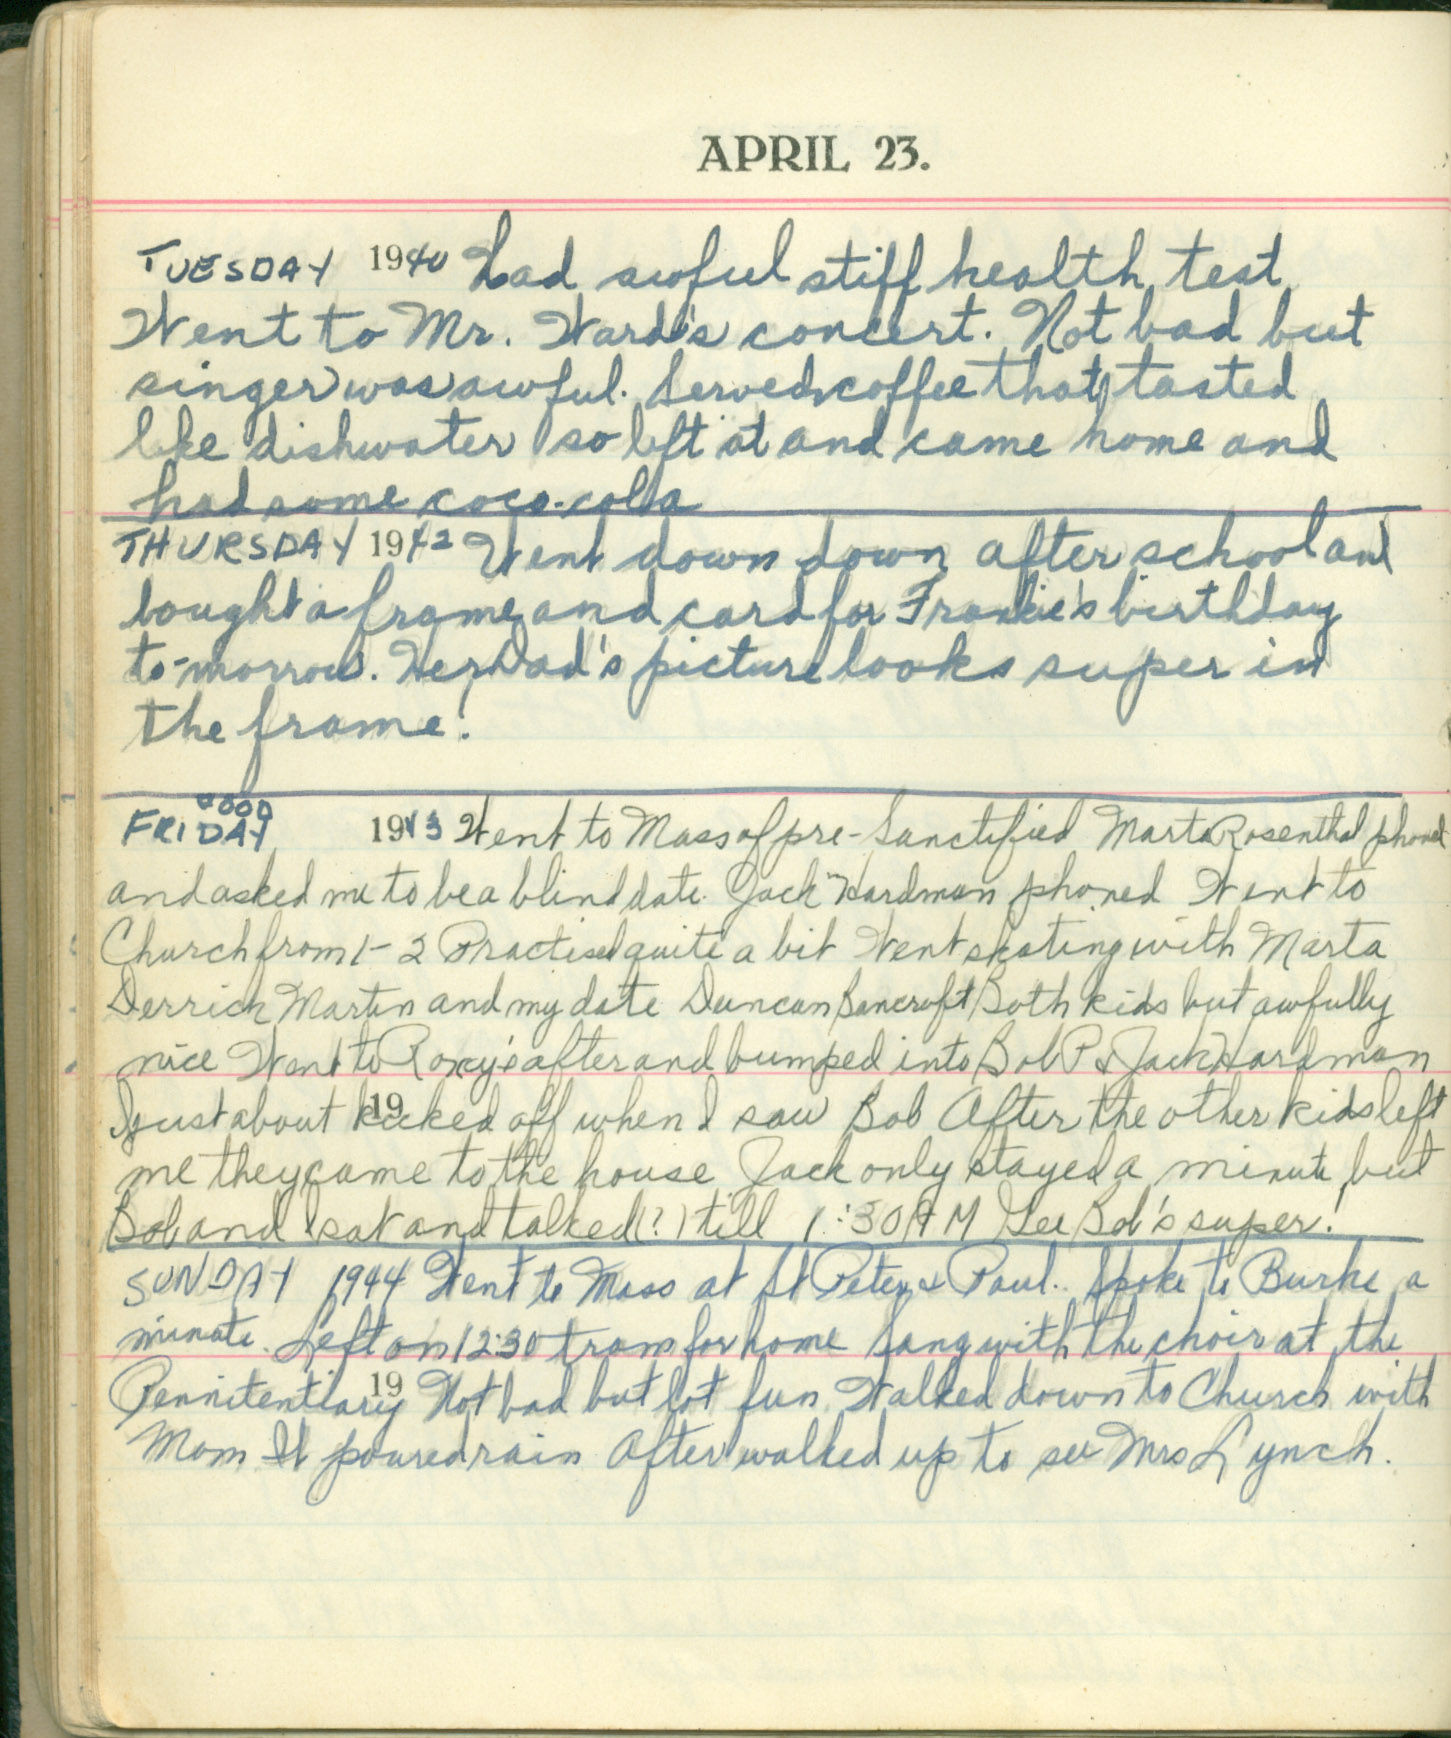 APRIL 23.
TUESDAY 1940 Had awful stiff health test
Went to Mr. Ward's concert. Not bad but
singer was awful. Served coffee that tasted
like dishwater so left it and came home and
had some coco-cola
THURSDAY 1942 Went down down after school and
bought a frame and card for Frankie's birthday
to-morrow. Her Dad's picture looks super in
the frame!
GOOD
FRIDAY 1943 Went to Mass of pre-Sanctified Marta Rosenthal phoned
and asked me to be a blind date. Jack Hardman phoned Went to
Church from 1-2 Practised quite a bit Went skating with Marta
Derrick Martin and my date Duncan Bancroft Both kids but awfully
nice Went to Roxy's after and bumped into Bob P & Jack Hardman
I just about kicked off when I saw Bob After the other kids left
19
me they came to the house Jack only stayed a minute but
Bob and I sat and talked(?) till 1:30 AM Gee Bob's super!
SUNDAY 1944 Went to Mass at St Peter & Paul. Spoke to Burke a
minute. Left on 12:30 tram for home Sang with the choir at the
Pennitentiary Not bad but lot fun Walked down to Church with
19
Mom It poured rain After walked up to see Mrs Lynch.